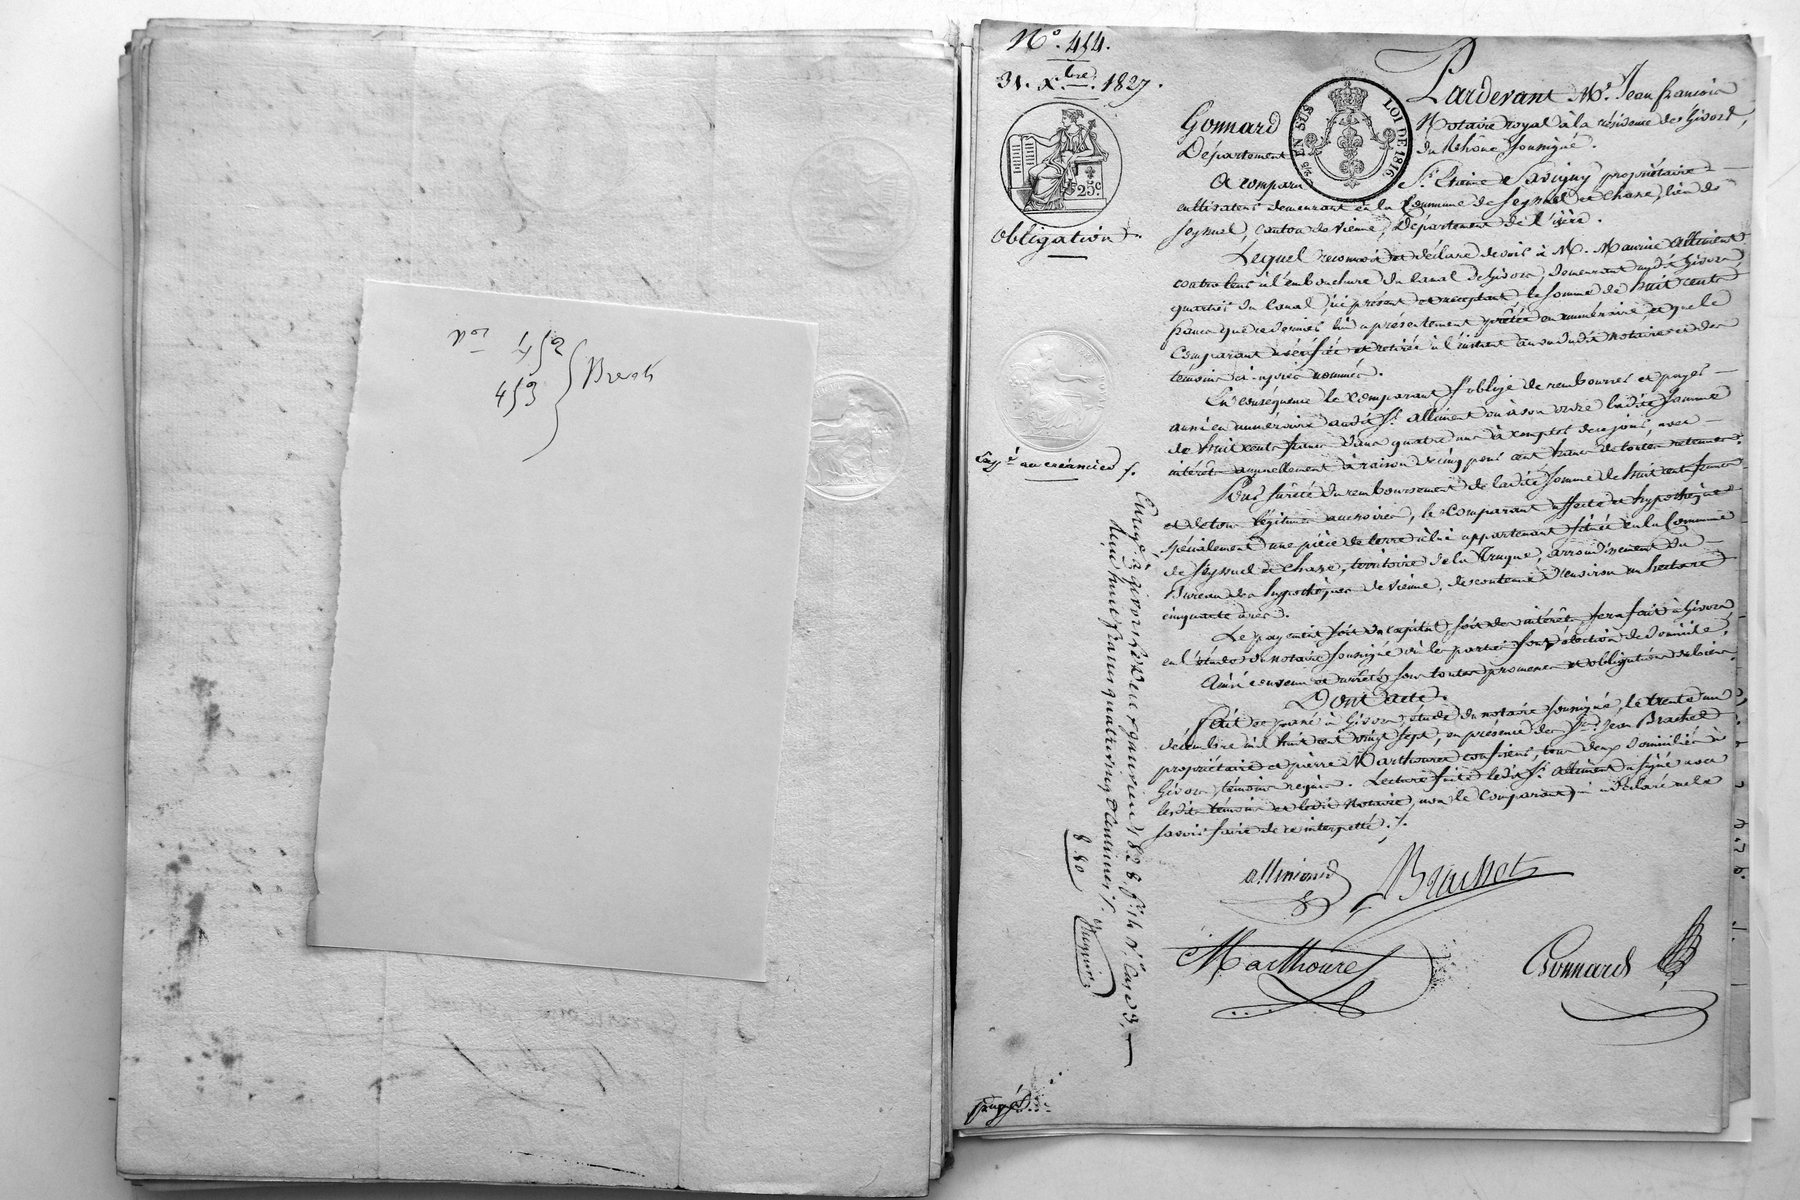 Nos 452
453
Brevets
No. 454.
31. Xbre. 1827.
25c.
EN SUS
LOI DE 1816
Obligation.
Expé. au créancier /.
Pardevant Me. Jean françois
Gonnard Notaire royal à la résidence de Givors,
Département du Rhône soussigné.
A comparu Sr. Etienne Savigny propriétaire
cultivateur demeurant en la Commune de Seyssuel et Chasse, lieu de
Seyssuel, Canton de Vienne, Département de l'isère.
Lequel reconnait et déclare devoir à M. Maurice Alliment
controleur à l'embouchure du Canal de Givors, demeurant audit Givors
quartier du Canal, ici présent et acceptant la somme de huit cents
francs que ce dernier lui a présentement prêtée en numéraire, et que le
Comparant a vérifiée et retirée à l'instant au vu dudit notaire et des
temoins ci-après nommés.
En conséquence le comparant s'oblige de rembourser et payer
aussi en numéraire audit Sr. Alliment ou à son ordre ladite somme
de huit cents francs dans quatre ans à compter de ce jour, avec
intérêts annuellement à raison de cinq pour cent francs de toutes retenues.
Pour sûreté du remboursement de ladite somme de huit cents francs
et de tous légitimes accessoires, le Comparant affecte et hypothèque
spécialement une pièce de terre à lui appartenant située en la Commune
de Seyssuel et Chasse, territoire de la arrondissement du
Bureau des hypothèques de Vienne, de contenue d'environ un hectare
cinquante ares.
Le payement soit du capital soit des intérêts sera fait à Givors
en l'étude du notaire soussigné où les parties font élection de domicile,
Ainsi convenu et arrêté sous toutes promesses et obligations de biens
Dont acte.
Fait et passé à Givors, étude du notaire soussigné, le trente un
décembre mil huit cent vingt sept, en présence des Srs. Jean Brachet
propriétaire et pierre Marthouret confiseur, tous deux domiciliés à
Givors, témoins requis. Lecture faite ledit Sr. Alliment a signé avec
lesdits témoins et ledit Notaire, non le Comparant qui a déclaré ne le
savoir faire de ce interpellé. /.
alliment
Brachet
Marthouret
Gonnard
Enregé. à givors le deux janvier 1828. fo. 14 vo. Case 3,
Reçu huit francs quatre vingt centimes /.
8.80